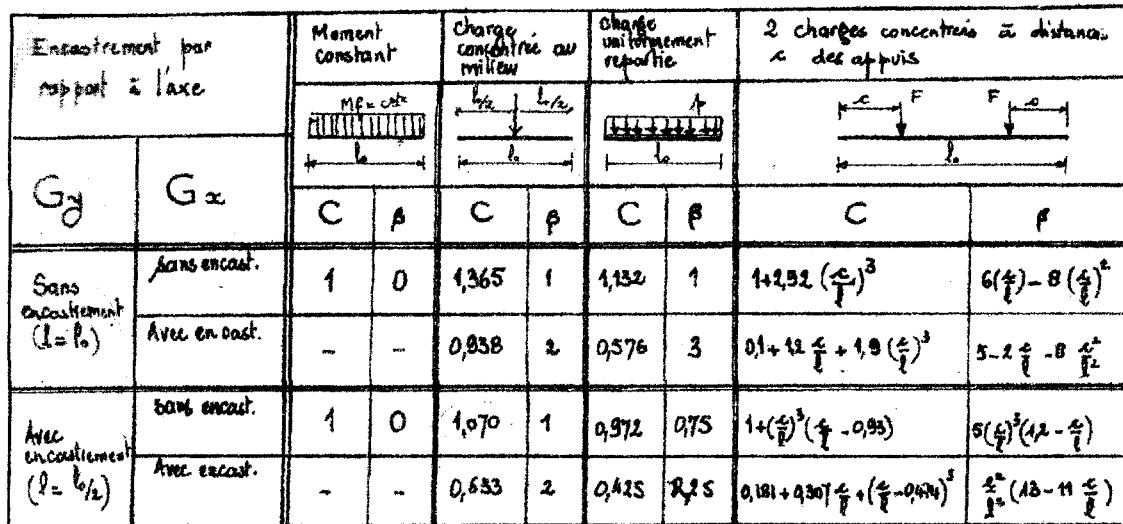 Encastrement par
rapport à l'axe
Moment
constant
Charge
concentrée au
milieu
charge
uniformement
repartie
2 charges concentreés à distance
c des appuis
Mf = cste
l₀
l₀/2 l₀/2
l₀
p
l₀
c F F c
l₀
Gy Gx C β C β C β C β
Sans
encastrement
(l = l₀)
Sans encast. 1 0 1,365 1 1,132 1 1+2,92 (c/l)³ 6(c/l) - 8 (c/l)²
Avec encast. - - 0,938 2 0,576 3 0,1 + 1,2 c/l + 1,9 (c/l)³ 5 - 2 c/l - 8 c²/l²
Avec
encastrement
(l = l₀/2)
Sans encast. 1 0 1,070 1 0,972 0,75 1+(c/l)³(c/l - 0,93) 5(c/l)³(1,2 - c/l)
Avec encast. - - 0,633 2 0,425 2,25 0,181 + 0,307 c/l + (c/l - 0,474)³ c²/l² (13 - 11 c/l)